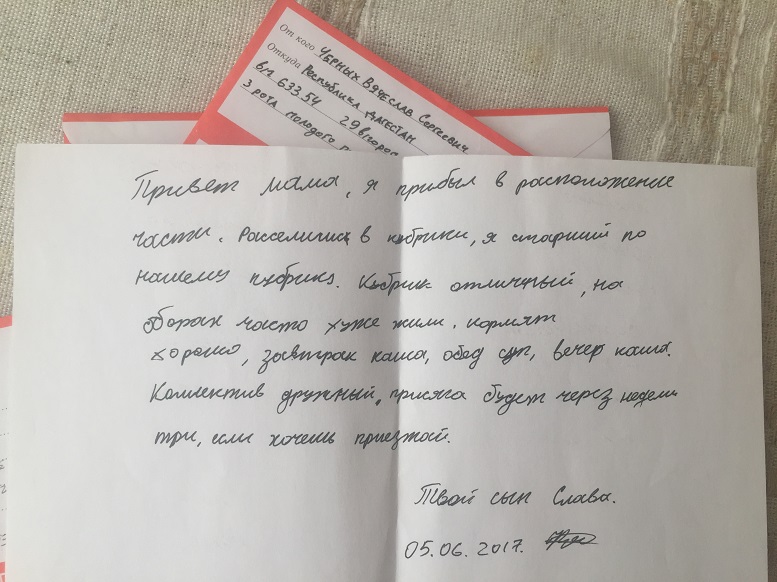 От кого Черных Вячеслав Сергеевич
Откуда Республика Дагестан
в/ч 63354 29
3 рота молодого
Привет мама, я прибыл в расположение
части. Расселились в кубрики, я старший по
нашему кубрику. Кубрик отличный, на
сборах часто хуже жили. Кормят
хорошо, завтрак каша, обед суп, вечер каша.
Коллектив дружный, присяга будет через недели
три, если хочешь приезжай.
Твой сын Слава.
05.06.2017.